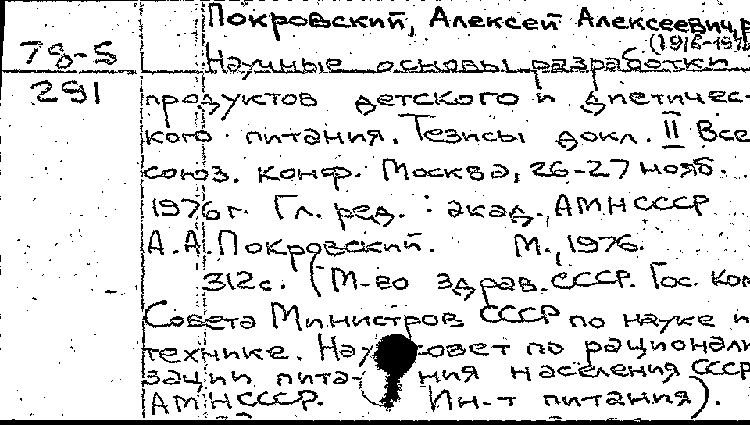 Покровский, Алексей Алексеевич, р
(1916-197
78-5
Научные основы разработки
291
продуктов детского и диетичес-
кого питания. Тезисы докл. II Все
союз. конф. Москва, 26-27 нояб.
1976 г. Гл. ред.: акад. АМН СССР
А.А. Покровский. М., 1976.
312 с. (М-во здрав. СССР. Гос. ком
Совета Министров СССР по науке и
технике. Науч совет по рационали
зации пита- ния населения СССР
АМН СССР. Ин-т питания).